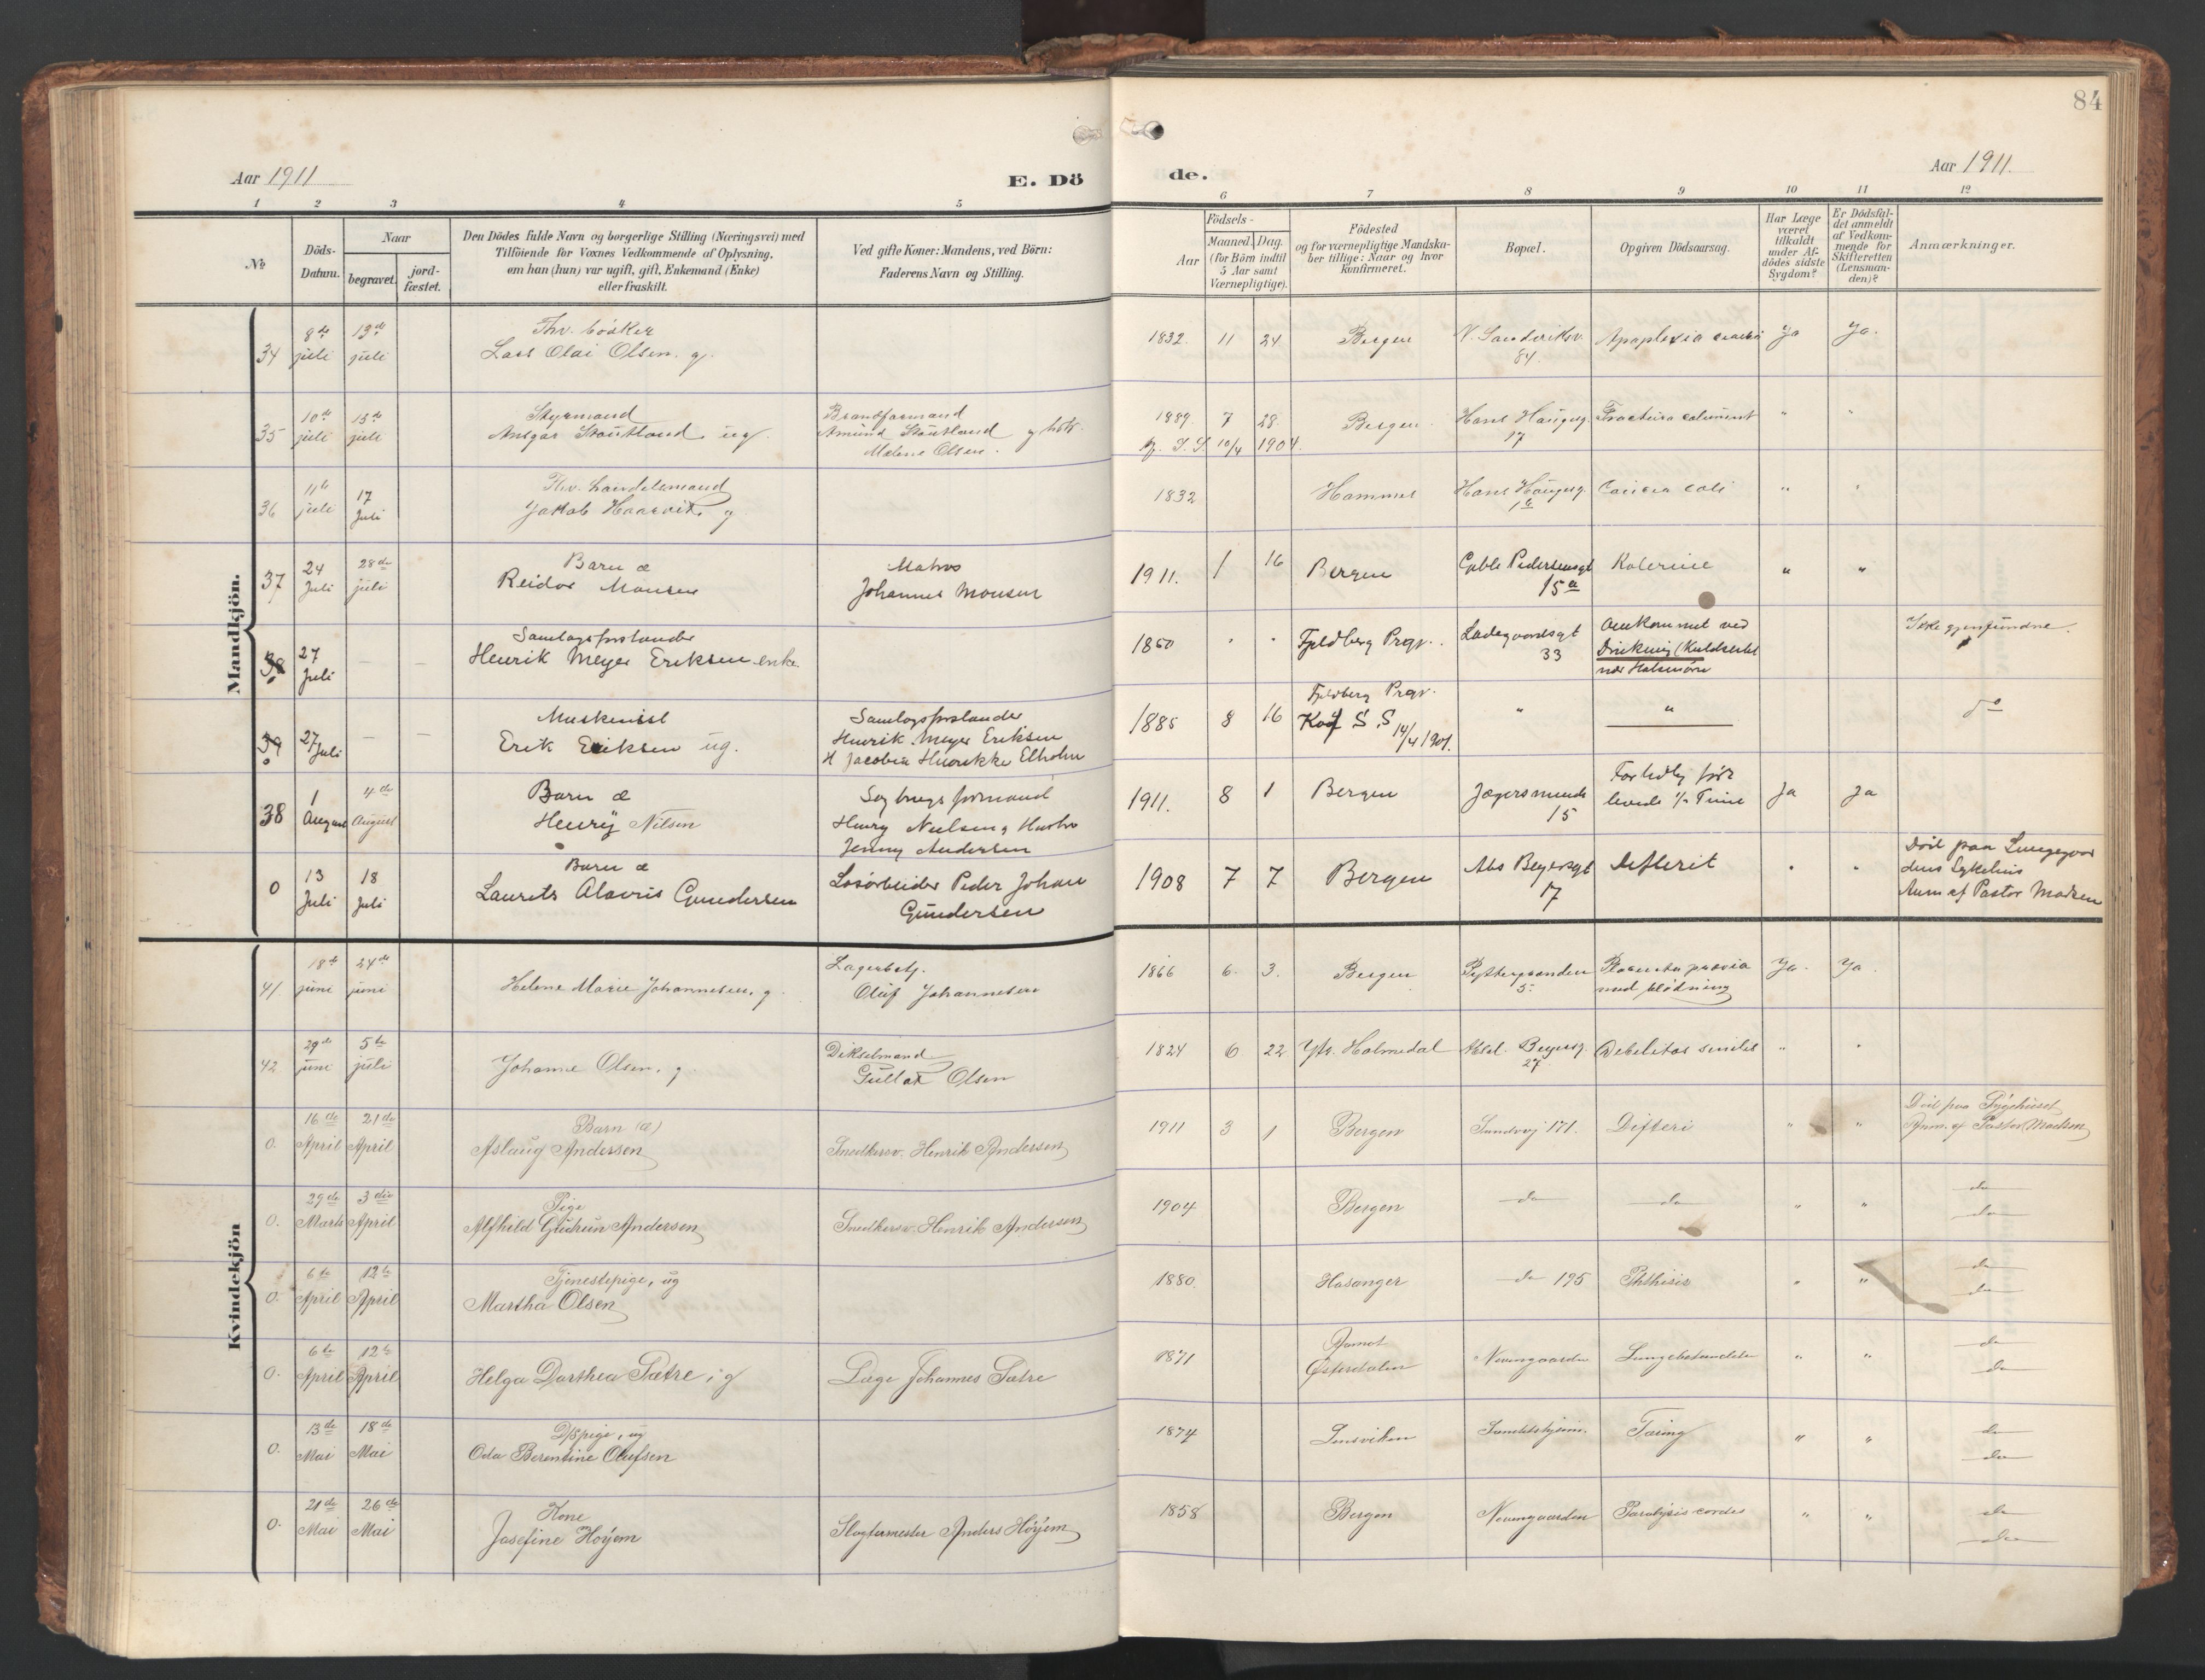 84
Aar 1911
E. Dö
de.
Aar 1911.
1 2 3 4 5 6 7 8 9 10 11 12
No
Döds-Datum.
Naar
begravet.
jord-fæstet.
Den Dödes fulde Navn og borgerlige Stilling (Næringsvei) med
Tilföiende for Voxnes Vedkommende af Oplysning,
om han (hun) var ugift, gift, Enkemand (Enke)
eller fraskilt.
Ved gifte Koner: Mandens, ved Börn:
Faderens Navn og Stilling.
Födsels-
Aar
Maaned. Dag.
(for Börn indtil
5 Aar samt
Værnepligtige).
Födested
og for værnepligtige Mandska-
ber tillige: Naar og hvor
konfirmeret.
Bopæl.
Opgiven Dödsaarsag.
Har Læge
været
tilkaldt
under Af-
dödes sidste
Sygdom?
Er Dödsfal-
det anmeldt
af Vedkom-
mende for
Skifteretten
(Lensman-
den)?
Anmærkninger.
Mandkjön.
34 8de juli 13de juli
Fhv. bödker
Lars Olai Olsen. g.
1832. 11 24 Bergen
84.
Apoplexia Ja Ja.
35 10de juli 15de juli
Styrmand
Ansgar Stautland ug.
Brandformand
Amund Stautland g. hstr.
Malene Olsen.
1889. 7 28. Bergen
Hans Haugesg. 17
S. S 10/4 1904.
" "
36 11te juli 17 Juli
Fhv. handelsmand
Jakob Haarvik. g
1832 Hammer
Hans Haugesg.
coli " "
37 24 Juli 28de juli
Barn æ
Reidar Monsen
Matros
Johannes Monsen
1911. 1 16 Bergen
Gable Pedersensgt
15a
" "
38 27 Juli — —
Samlagsforstander
Henrik Meyer Eriksen enke
1850 " " Fjeldberg Prgj.
Ladegaardsgt
33
Omkommet ved
Drukning
Ikke gjenfundne.
39 27 Juli — —
Maskinist
Erik Eriksen ug.
Samlagsforstander
Henrik Meyer Eriksen
H Jacobia Elholm
1885 8 16 Fjeldberg Prgj.
Konf S. S 14/4 1901.
" " do
38 1 August 4de August
Barn æ
Henry Nilsen
formand
Henry Nielsen g Hustru
Jenny Andersen
1911. 8 1 Bergen
15
levede Time
Ja Ja
0 13 Juli 18 Juli
Barn æ
Laurets Gundersen
Løsarbeider Peder Johan
Gundersen
1908 7 7 Bergen
Abs Beyersgt
17
Difterit
" "
Död paa Lungegaar
dens Sykehus
Anm af Pastor Madsen
Kvindekjön
41. 18de juni 24de juni
Helene Marie Johannesen. g.
Lagerbetj.
Oluf Johannesen
1866 6. 3. Bergen
5.
Placenta prævia
med blödning
Ja. Ja.
42. 29de juni 5te juli
Johanne Olsen. g.
Dikselmand
Gullak Olsen
1824 6 22 Ytr. Holmedal
Absal. Beyersg.
27
Debilitas senilis " "
0. 16de April 21de April
Barn (æ)
Aslaug Andersen
Snedkersv. Henrik Andersen
1911 3 1 Bergen
Sandvj 171. Difteri " "
Död paa Sygehuset
Anm. af Pastor Madsen
0. 29de Marts 3die April
Pige
Alfhild Gudrun Andersen
Snedkersv. Henrik Andersen
1904 Bergen
do do " "
do
do
0. 6te April 12te April
Tjenestepige, ug
Martha Olsen
1880. Hasanger
do 195 Phthisis " "
do
do
0. 6te April 12te April
Helga Dorthea Sætre ; g
Læge Johannes Sætre
1871 Aamot
Østerdalen
Nevengaarden " "
do
do
0. 13de Mai 18de Mai
D/spige, ug
Oda Berentine Olufsen
1874 Lensviken
Taring " "
do
do
0. 21de Mai 26de Mai
Kone
Josefine Höyem
Slagtermester Anders Höyem
1858 Bergen
Nevengaarden Paralysis cordis " "
do
do